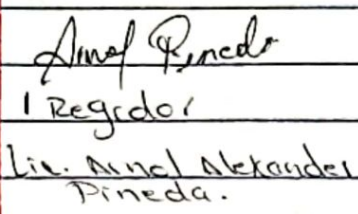 Arnol Pineda
1 Regidor
Lic. Arnol Alexander
Pineda.